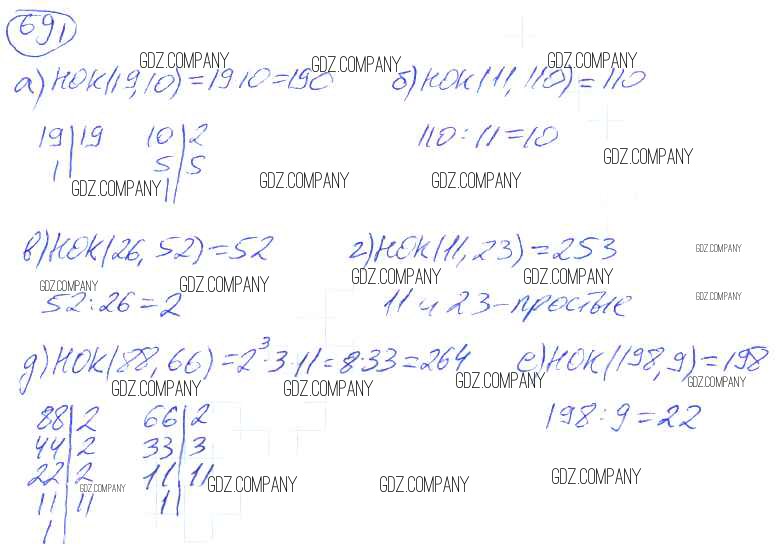 691
GDZ.COMPANY GDZ.COMPANY GDZ.COMPANY
а) НОК(19,10)=19·10=190 б) НОК(11, 110)=110
19|19 10|2 110:11=10
1| 5|5 GDZ.COMPANY
1|
GDZ.COMPANY GDZ.COMPANY GDZ.COMPANY
в) НОК(26, 52)=52 г) НОК(11, 23)=253 GDZ.COMPANY
GDZ.COMPANY GDZ.COMPANY GDZ.COMPANY GDZ.COMPANY
52:26=2 11 и 23-простые GDZ.COMPANY
д) НОК(88, 66)=2³·3·11=8·33=264 е) НОК(198, 9)=198
GDZ.COMPANY GDZ.COMPANY GDZ.COMPANY GDZ.COMPANY
88|2 66|2 198:9=22
44|2 33|3
22|2 11|11 GDZ.COMPANY
11|11 1| GDZ.COMPANY GDZ.COMPANY GDZ.COMPANY
1|